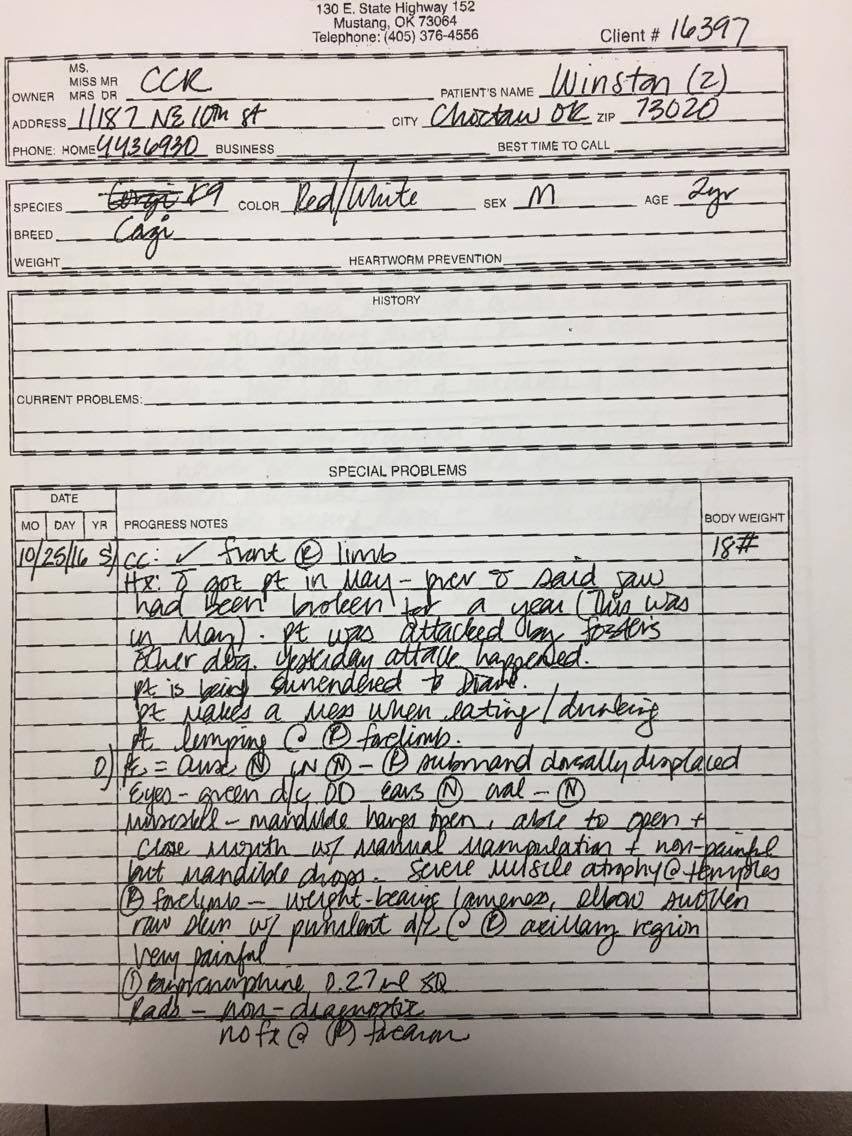 130 E. State Highway 152
Mustang, OK 73064
Telephone: (405) 376-4556
Client # 16397
MS.
MISS MR
OWNER MRS DR CCR PATIENT'S NAME Winston (2)
ADDRESS 11187 NE 10th st CITY Choctaw OK ZIP 73020
PHONE: HOME 4436930 BUSINESS BEST TIME TO CALL
SPECIES K9 COLOR Red/White SEX M AGE 2yr
BREED
WEIGHT HEARTWORM PREVENTION
HISTORY
CURRENT PROBLEMS:
SPECIAL PROBLEMS
DATE
MO DAY YR PROGRESS NOTES BODY WEIGHT
10/25/16 S) CC: ✓ front (R) limb 18#
Hx: got pt in May - prev said jaw
had been broken for a year (This was
in May). Pt was attacked by fosters
other dog. Yesterday attack happened.
pt is being surrendered to Diane.
Pt makes a mess when eating/drinking
Pt limping @ (R) forelimb.
O) PE = (N) (N) - (R) submand dorsally displaced
Eyes - green d/c OD ears (N) oral - (N)
- mandible hangs open, able to open +
close mouth w/ manual manipulation + non-painful
but mandible drops. Severe muscle atrophy @ temples
(R) forelimb - weight-bearing lameness, elbow swollen
raw skin w/ purulent d/c @ (R) axillary region
Very painful
(1) Buprenorphine 0.27 ml SQ
Rads - non-diagnostic
no fx @ (R) forearm